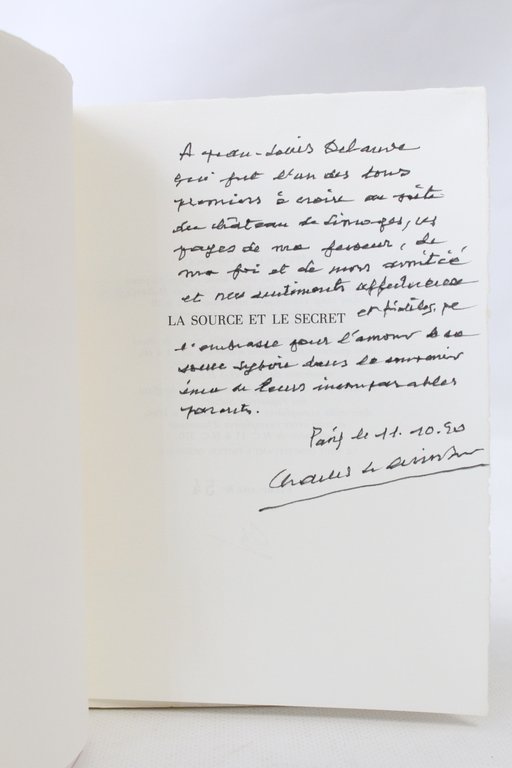 A Jean-Louis Delaune
qui fut l'un des tous
premiers à croire au poète
du château de Limoges, ces
pages de ma ferveur, de
ma foi et de mon amitié
et nos sentiments affectueux
et fidèles, je
LA SOURCE ET LE SECRET
l'embrasse pour l'amour de sa
sœur Sylvie dans le souvenir
ému de leurs incomparables
parents.
Paris le 11. 10. 90
Charles le